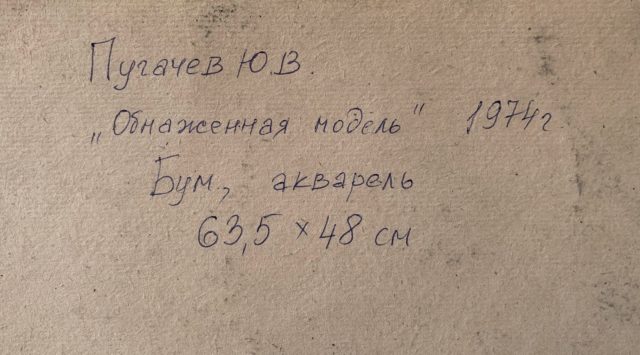 Пугачев Ю.В.
„Обнаженная модель" 1974г.
Бум., акварель
63,5 × 48 см